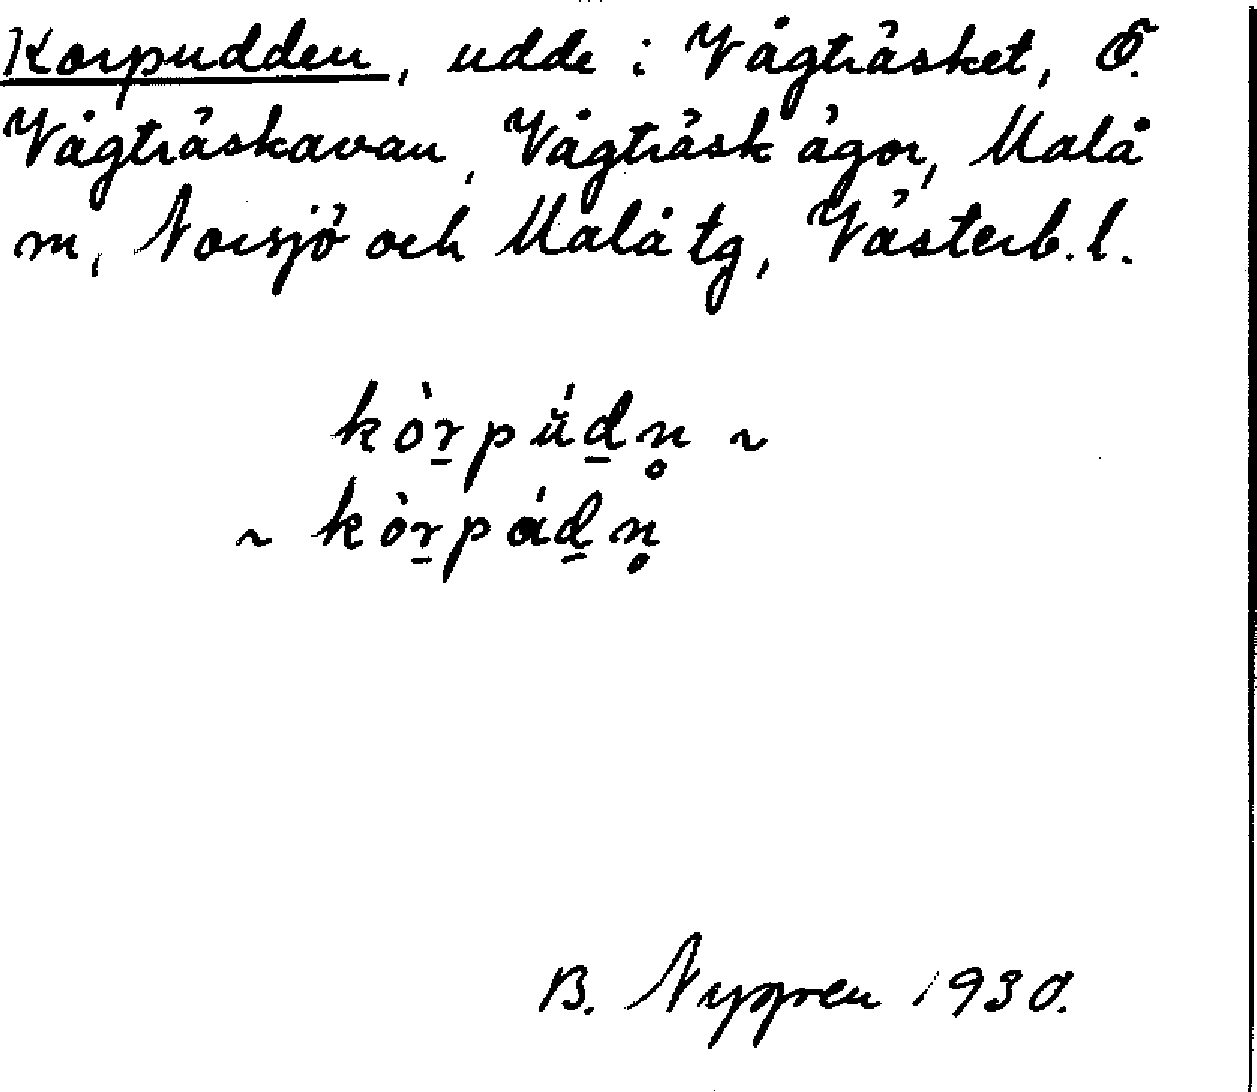 Korpudden, udde i Vågträsket, Ö.
Vågträskavan, Vågträsk ägor, Malå
sn, Norsjö och Malå tg, Västerb. l.
kòr̠pŭ́d̠n̥ ~
~ kòr̠pád̠n̥
B. Nygren 1930.